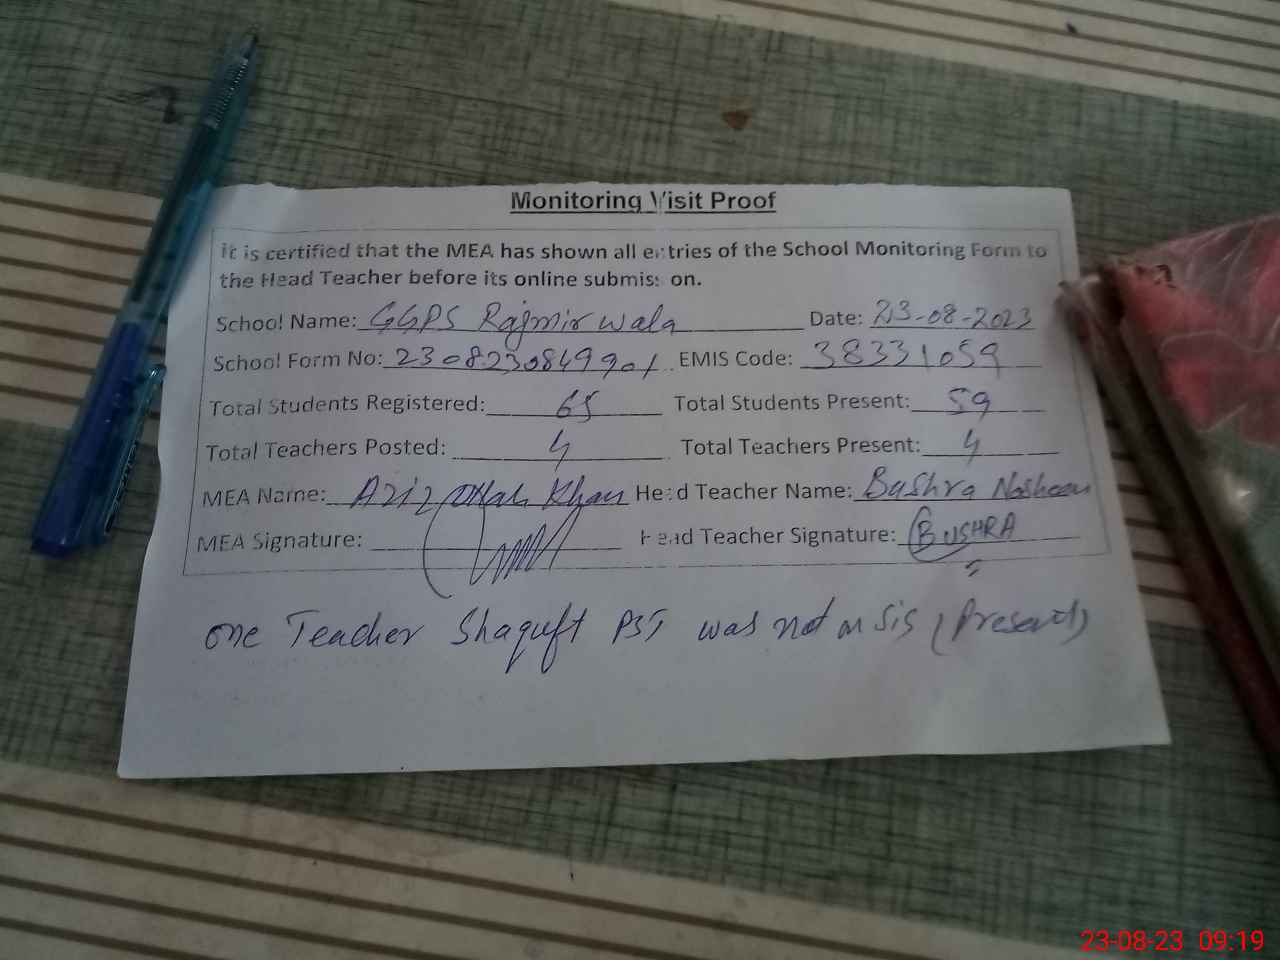 Monitoring Visit Proof
It is certified that the MEA has shown all entries of the School Monitoring Form to
the Head Teacher before its online submission.
School Name: GGPS Rajmir wala Date: 23-08-2023
School Form No: 2308230849901 EMIS Code: 38331059
Total Students Registered: 65 Total Students Present: 59
Total Teachers Posted: 4 Total Teachers Present: 4
MEA Name: Aziz ullah Khan Head Teacher Name: Bushra Nosheen
MEA Signature: Head Teacher Signature: BUSHRA
one Teacher Shaguft PST was not on sis (Present)
23-08-23 09:19